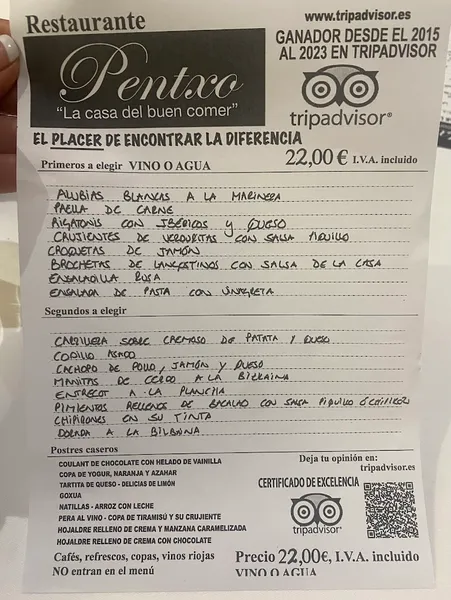 Restaurante
Pentxo
"La casa del buen comer"
www.tripadvisor.es
GANADOR DESDE EL 2015
AL 2023 EN TRIPADVISOR
tripadvisor®
EL PLACER DE ENCONTRAR LA DIFERENCIA
Primeros a elegir VINO O AGUA 22,00 € I.V.A. incluido
ALUBIAS BLANCAS A LA MARINERA
PAELLA DE CARNE
RIGATONIS CON IBÉRICOS Y QUESO
CRUJIENTES DE VERDURITAS CON SALSA PIQUILLO
CROQUETAS DE JAMÓN
BROCHETAS DE LANGOSTINOS CON SALSA DE LA CASA
ENSALADILLA RUSA
ENSALADA DE PASTA CON VINAGRETA
Segundos a elegir
CARRILLERA SOBRE CREMOSO DE PATATA Y QUESO
CODILLO ASADO
CACHOPO DE POLLO, JAMÓN Y QUESO
MANITAS DE CERDO A LA BIZKAINA
ENTRECOT A LA PLANCHA
PIMIENTOS RELLENOS DE BACALAO CON SALSA PIQUILLO
CHIPIRONES EN SU TINTA
DORADA A LA BILBAINA
Postres caseros
COULANT DE CHOCOLATE CON HELADO DE VAINILLA
COPA DE YOGUR, NARANJA Y AZAHAR
TARTITA DE QUESO - DELICIAS DE LIMÓN
GOXUA
NATILLAS - ARROZ CON LECHE
PERA AL VINO - COPA DE TIRAMISÚ Y SU CRUJIENTE
HOJALDRE RELLENO DE CREMA Y MANZANA CARAMELIZADA
HOJALDRE RELLENO DE CREMA CON CHOCOLATE
Cafés, refrescos, copas, vinos riojas
NO entran en el menú
Deja tu opinión en:
tripadvisor.es
CERTIFICADO DE EXCELENCIA
tripadvisor®
Precio 22,00€, I.V.A. incluido
VINO O AGUA